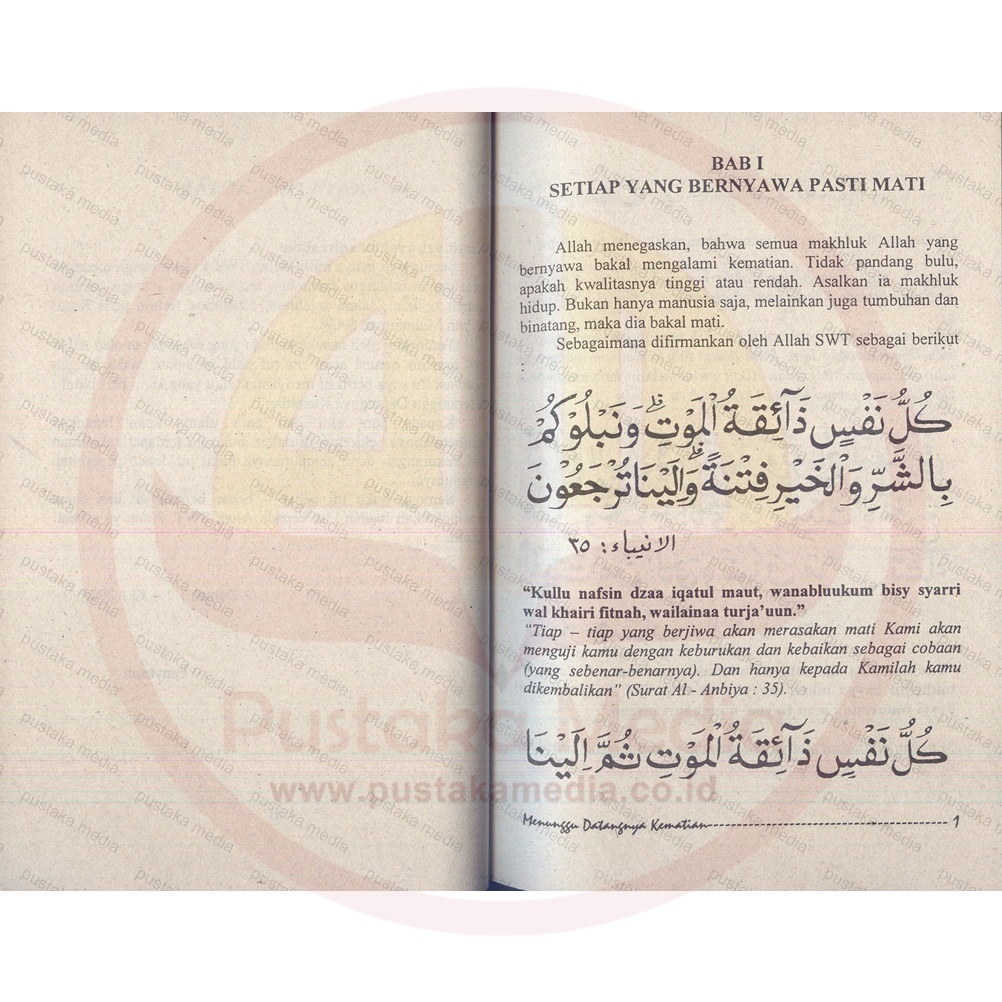 BAB I
SETIAP YANG BERNYAWA PASTI MATI
Allah menegaskan, bahwa semua makhluk Allah yang
bernyawa bakal mengalami kematian. Tidak pandang bulu,
apakah kwalitasnya tinggi atau rendah. Asalkan ia makhluk
hidup. Bukan hanya manusia saja, melainkan juga tumbuhan dan
binatang, maka dia bakal mati.
Sebagaimana difirmankan oleh Allah SWT sebagai berikut
:
كُلُّ نَفْسٍ ذَآئِقَةُ الْمَوْتِ ۗ وَنَبْلُوْكُمْ
بِالشَّرِّ وَالْخَيْرِ فِتْنَةً ۗ وَاِلَيْنَا تُرْجَعُوْنَ
الانبياء : ٣٥
“Kullu nafsin dzaa iqatul maut, wanabluukum bisy syarri
wal khairi fitnah, wailainaa turja’uun.”
“Tiap – tiap yang berjiwa akan merasakan mati Kami akan
menguji kamu dengan keburukan dan kebaikan sebagai cobaan
(yang sebenar-benarnya). Dan hanya kepada Kamilah kamu
dikembalikan” (Surat Al - Anbiya : 35).
كُلُّ نَفْسٍ ذَآئِقَةُ الْمَوْتِ ثُمَّ اِلَيْنَا
Menunggu Datangnya Kematian------------------------------------------ 1
Pustaka Media
www.pustakamedia.co.id
pustaka media